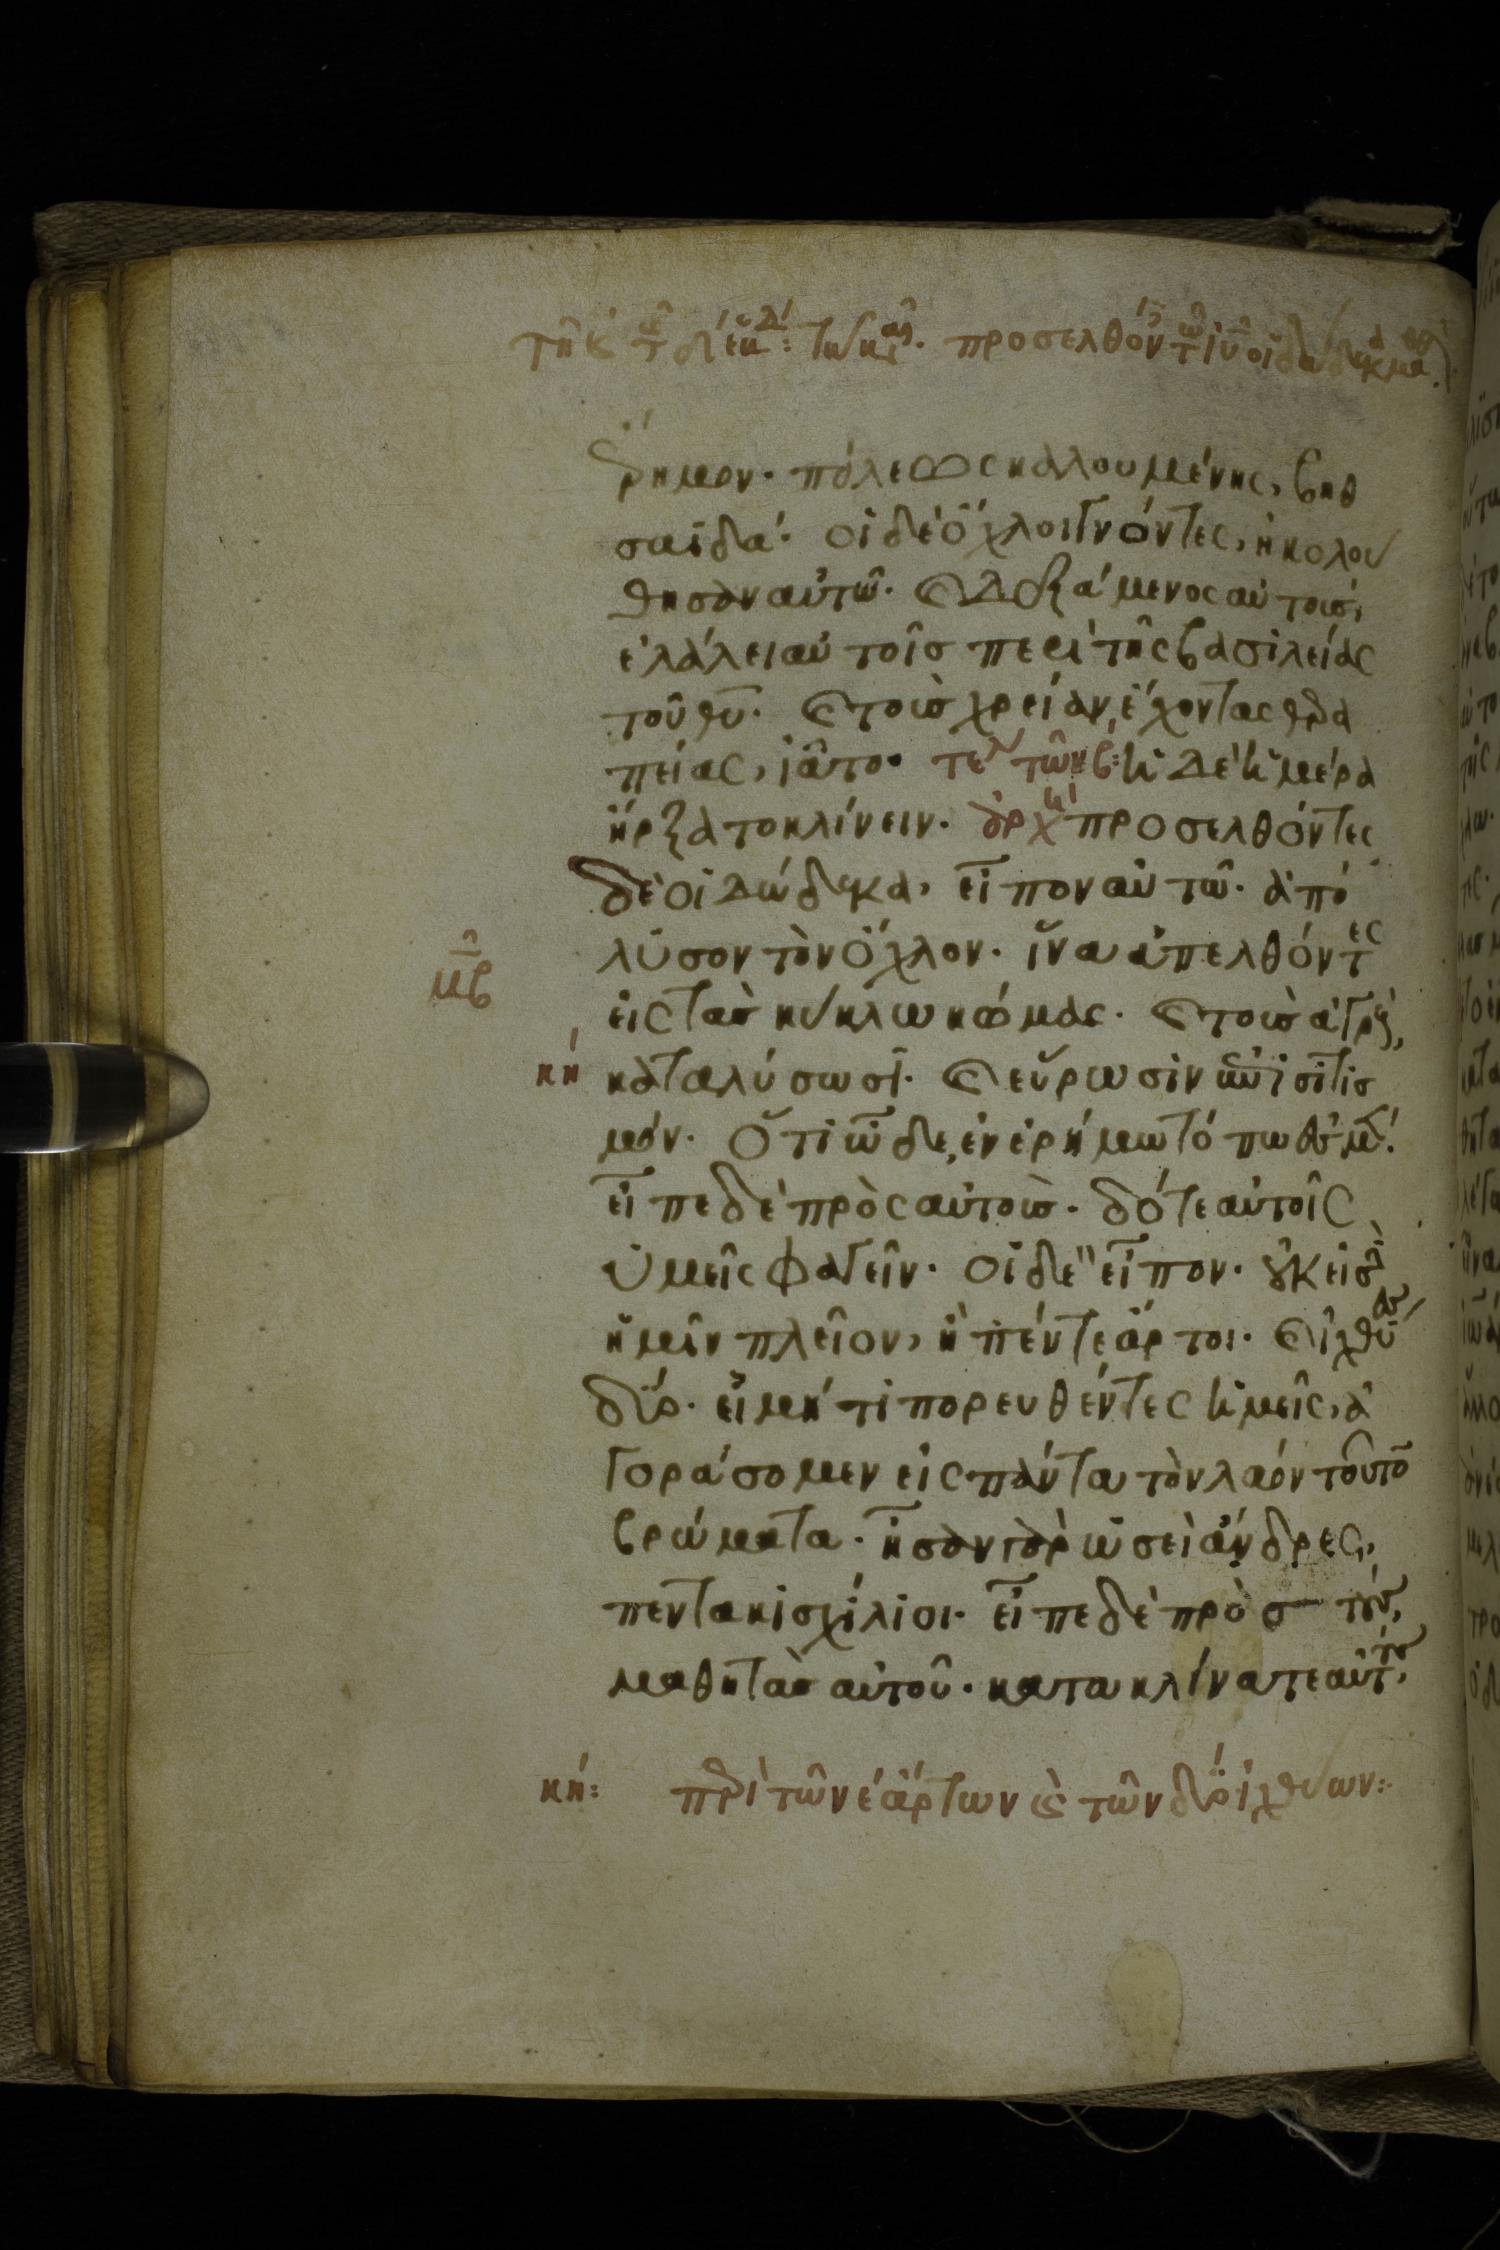 προσελθόν τ ιυ οι δώδεκα μαθ
ρημον· πόλεως καλουμένης, βηθ
σαϊδά· οἱ δὲ ὄχλοι γνόντες, ἠκολου
θησαν αὐτῶ· καὶ δεξάμενος αὐτοὺσ,
ἐλάλει αὐτοῖσ περὶ τῆς βασιλείας
τοῦ θυ· καὶ τοὺσ χρείαν ἔχοντας θερα
πείας, ἰᾶτο· τελ τῶν κβ: ἡ δὲ ἡμέρα
ἤρξατο κλίνειν· ἀρχ προσελθόντες
δὲ οἱ δώδεκα, εἶπον αὐτῶ· ἀπό
λυσον τὸν ὄχλον· ἵνα ἀπελθόντες
μβ
εἰς τὰσ κύκλω κώμας· καὶ τοὺσ ἀγροὺς,
κη καταλύσωσι· καὶ εὕρωσιν ἐπισιτισ
μόν· ὅτι ὧδε, ἐν ἐρήμω τόπω ἐσμέν·
εἶπε δὲ πρὸς αὐτοὺσ· δότε αὐτοῖς
ὑμεῖς φαγεῖν· οἱ δὲ εἶπον· οὐκ εἰσὶν
ἡμῖν πλεῖον, ἢ πέντε ἄρτοι· καὶ ἰχθύες
δύο· εἰ μή τι πορευθέντες ἡμεῖς, ἀ
γοράσομεν εἰς πάντα τὸν λαὸν τοῦτο
βρώματα· ἦσαν γὰρ ὡσεὶ ἄνδρες,
πεντακισχίλιοι· εἶπε δὲ πρὸσ τοὺς,
μαθητὰσ αὐτοῦ· κατακλίνατε αὐτοὺς,
κη: περὶ τῶν ε ἄρτων καὶ τῶν δύο ἰχθύων: